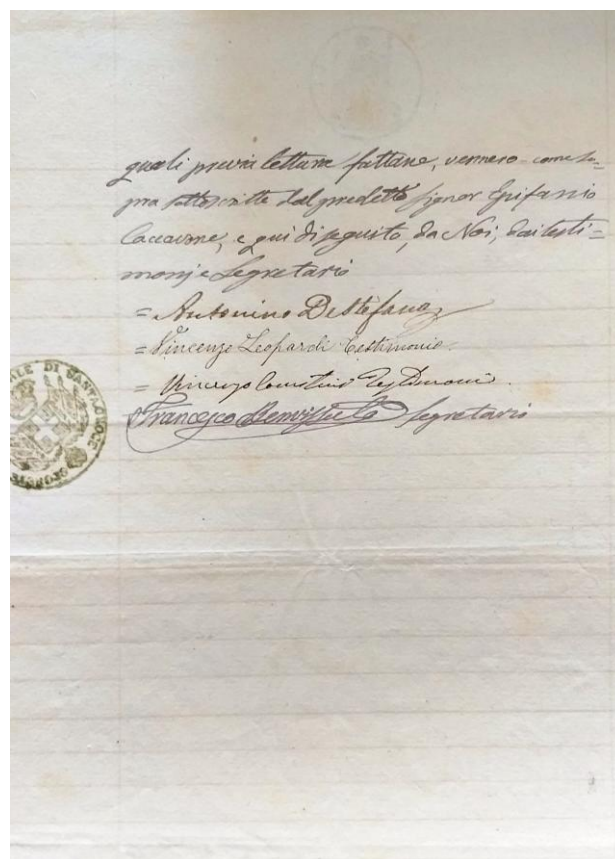 quali previa lettura fattane, vennero come so=
pra sottoscritte dal predetto Signor Epifanio
Caccavone, e qui di seguito, da Noi, dai testi=
monj e Segretario
= Antonino DeStefano
= Vincenzo Leopardi Testimonio
= Vincenzo Testimonio
Francesco Segretario
LE DI SANT'AGNOLO